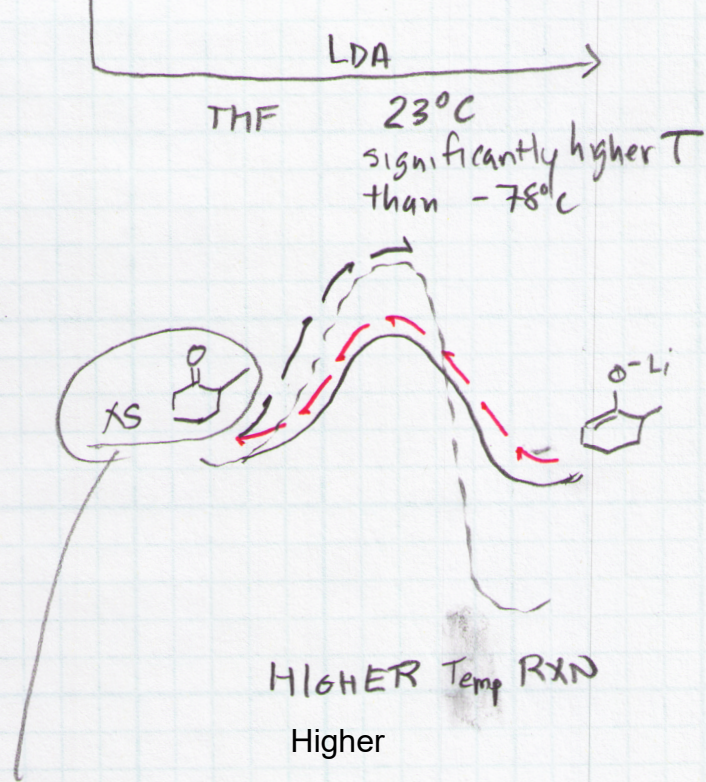 LDA
THF 23°C
significantly higher T
than -78°C
O
XS
O-Li
HIGHER Temp RXN
Higher